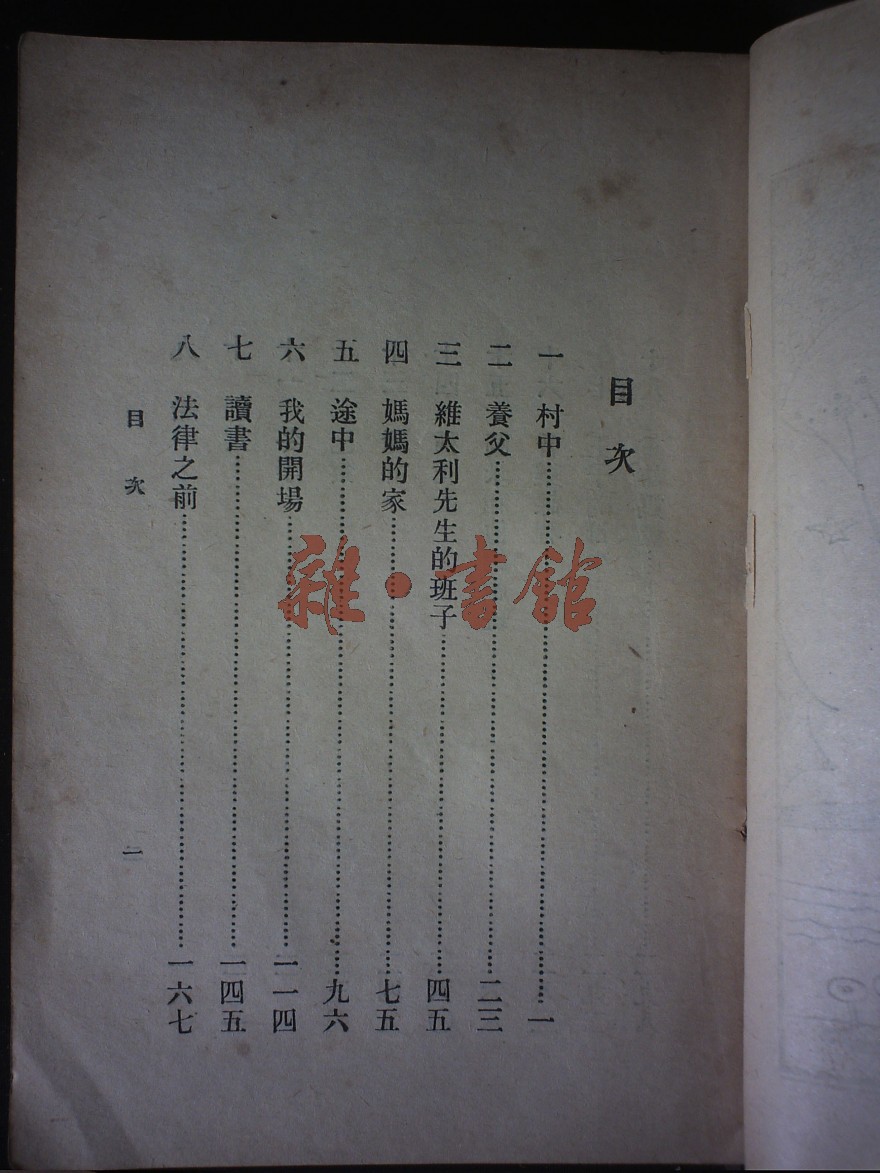 目次
一 村中……一
二 養父……二三
三 維太利先生的班子……四五
四 媽媽的家……七五
五 途中……九六
六 我的開場……一一四
七 讀書……一四五
八 法律之前……一六七
目次
一
雜·書館